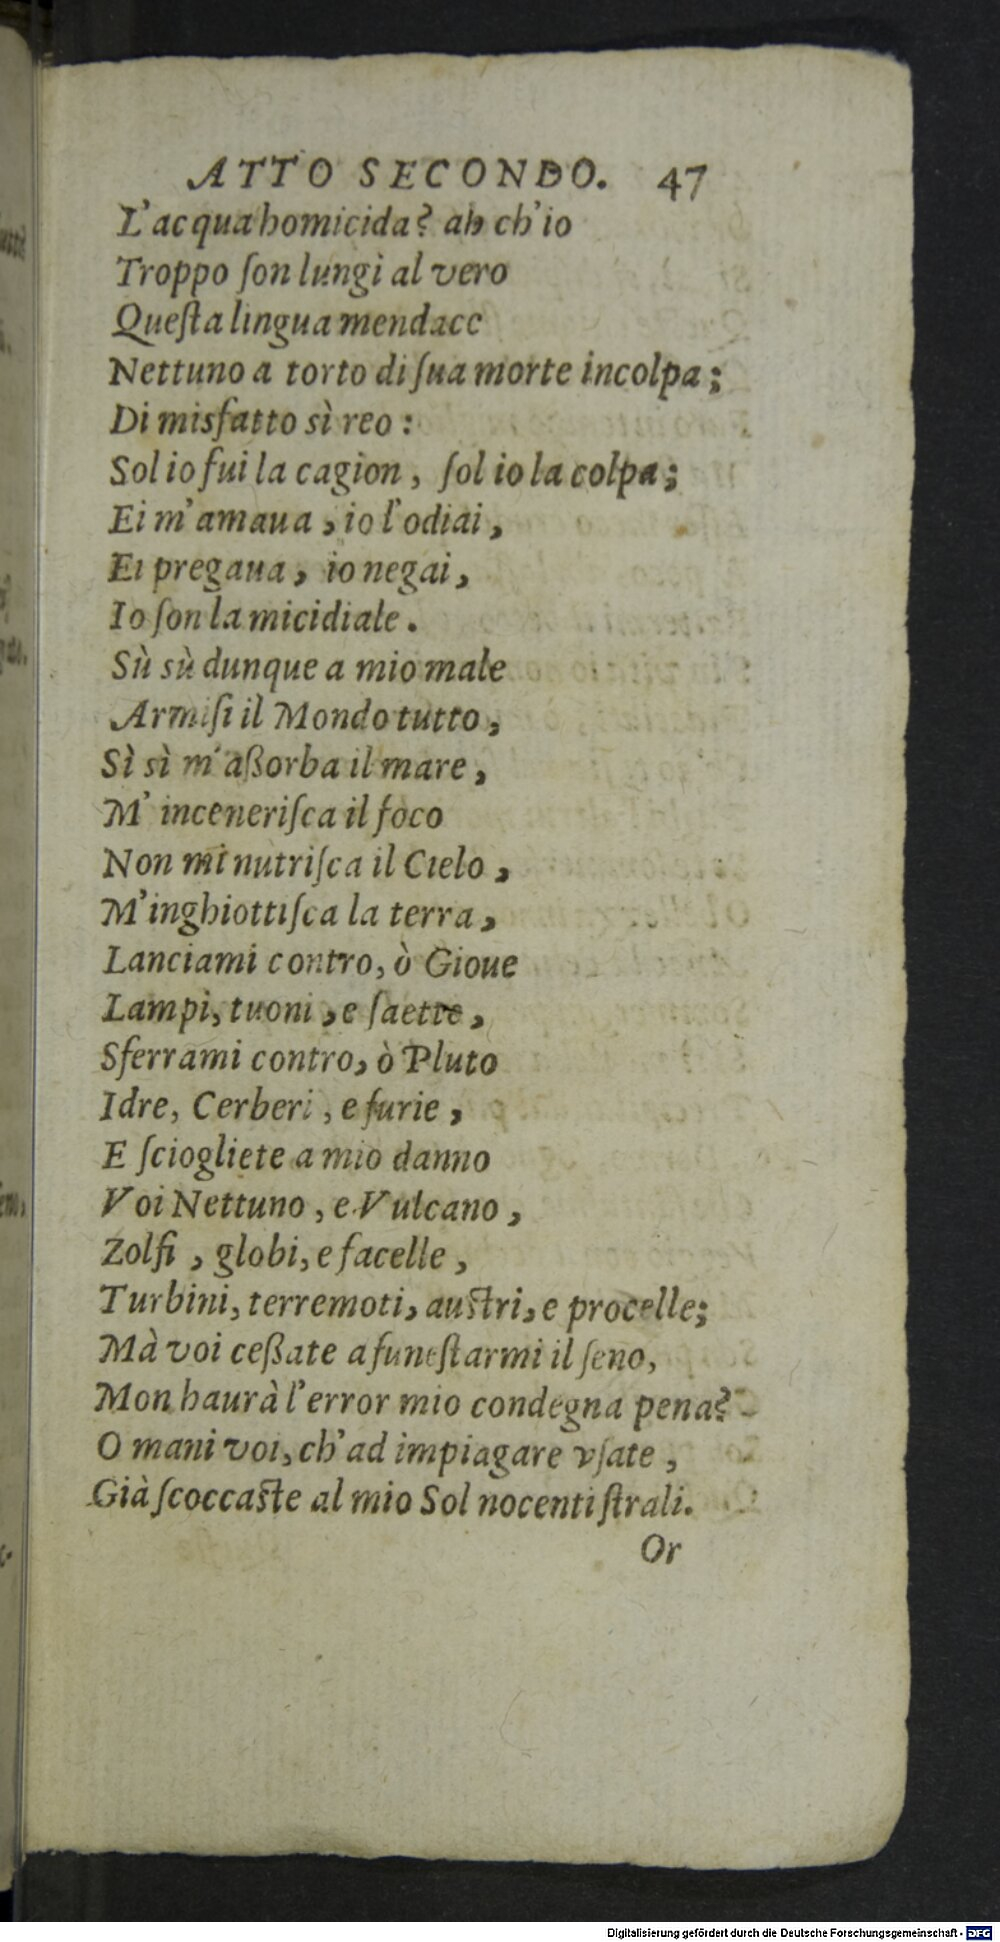 ATTO SECONDO. 47
L'acqua homicida? ah ch'io
Troppo ſon lungi al vero
Queſta lingua mendace
Nettuno a torto di ſua morte incolpa;
Di misfatto sì reo:
Sol io fui la cagion, ſol io la colpa;
Ei m'amaua, io l'odiai,
Ei pregaua, io negai,
Io ſon la micidiale.
Sù sù dunque a mio male
Armiſi il Mondo tutto,
Sì sì m'aßorba il mare,
M' inceneriſca il foco
Non mi nutriſca il Cielo,
M'inghiottiſca la terra,
Lanciami contro, ò Gioue
Lampi, tuoni, e ſaette,
Sferrami contro, ò Pluto
Idre, Cerberi, e furie,
E ſciogliete a mio danno
Voi Nettuno, e Vulcano,
Zolfi, globi, e facelle,
Turbini, terremoti, auſtri, e procelle;
Mà voi ceßate a funeſtarmi il ſeno,
Mon haurà l'error mio condegna pena?
O mani voi, ch'ad impiagare vſate,
Già ſcoccaſte al mio Sol nocenti ſtrali.
Or
Digitalisierung gefördert durch die Deutsche Forschungsgemeinschaft - DFG